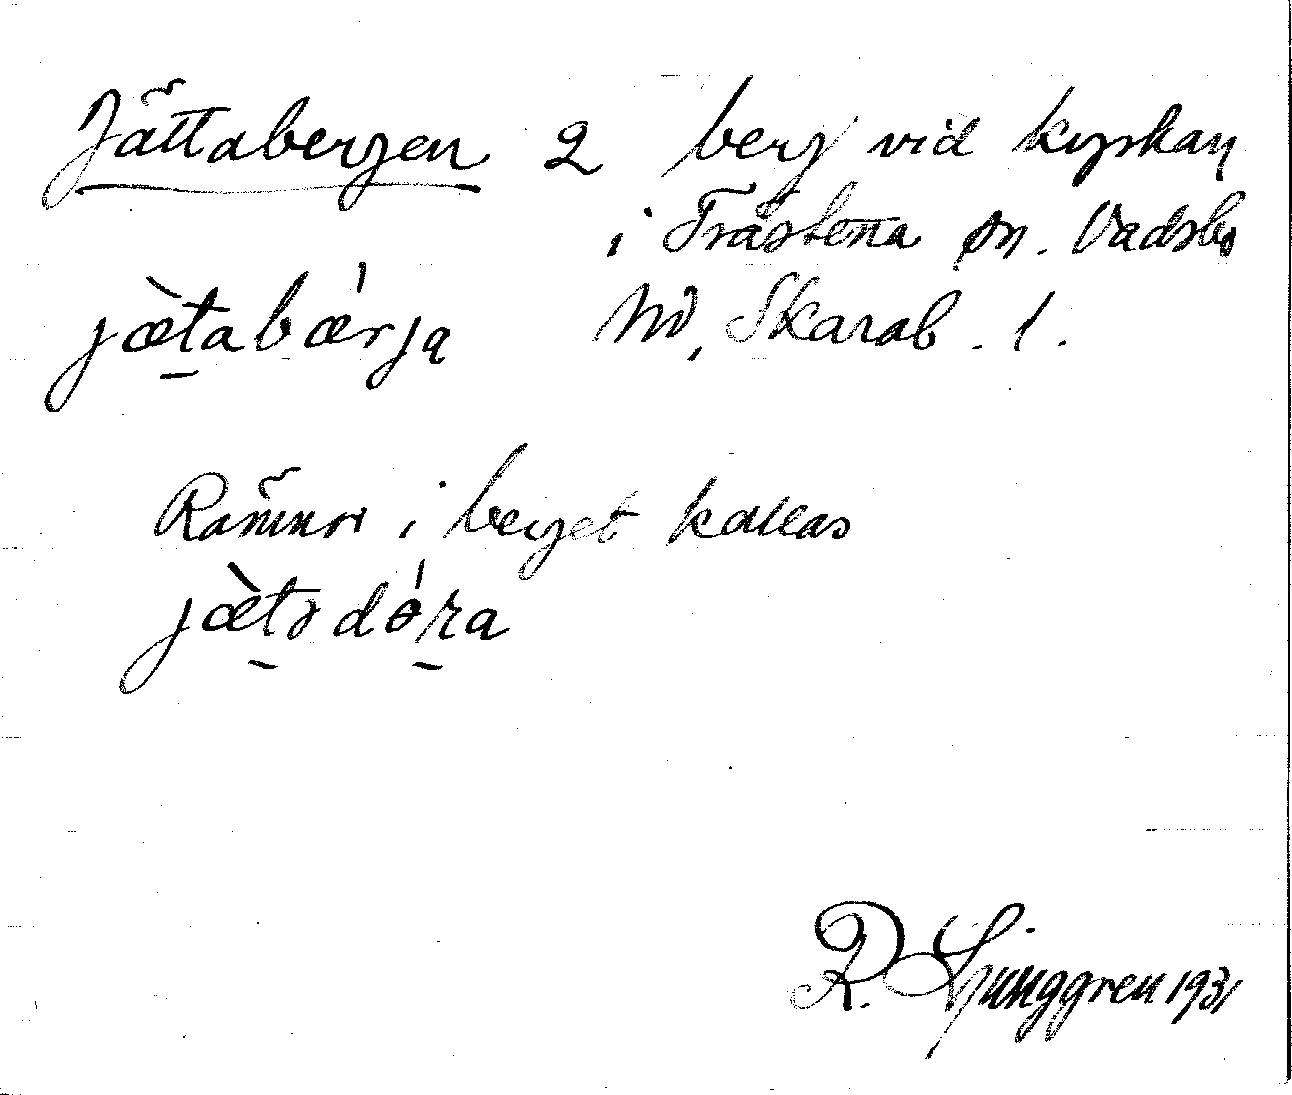 Jättabergen 2 berg vid kyrkan
i Trästena sn. Vadsbo
hd, Skarab. l.
jæ̀tabǽrja
Rämnor i berget kallas
jæ̀tədɵ́ra
R. Ljunggren 1931